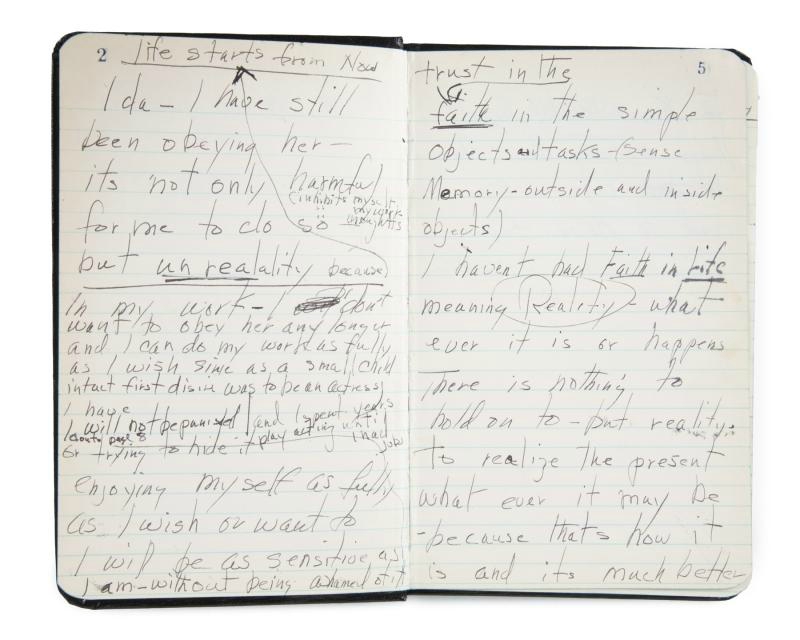 2
life starts from Now
Ida – I have still
been obeying her –
its not only harmful
(inhibits myself
my work
thoughts
for me to do so
but unreality because
In my work – I don't
want to obey her any longer
and I can do my work as fully
as I wish since as a small child
intact first disire was to be an actress
I have
I will not be punished and I spent years
play acting until
I had
jobs
or trying to hide it
enjoying myself as fully
as I wish or want to
I will be as sensitive as
I am – without being ashamed of it
5
trust in the
faith in the simple
objects and tasks – (Sense
Memory – outside and inside
objects)
I havent had Faith in Life
meaning Reality – what
ever it is or happens
There is nothing to
hold on to – but reality
to realize the present
what ever it may be
– because thats how it
is and its much better